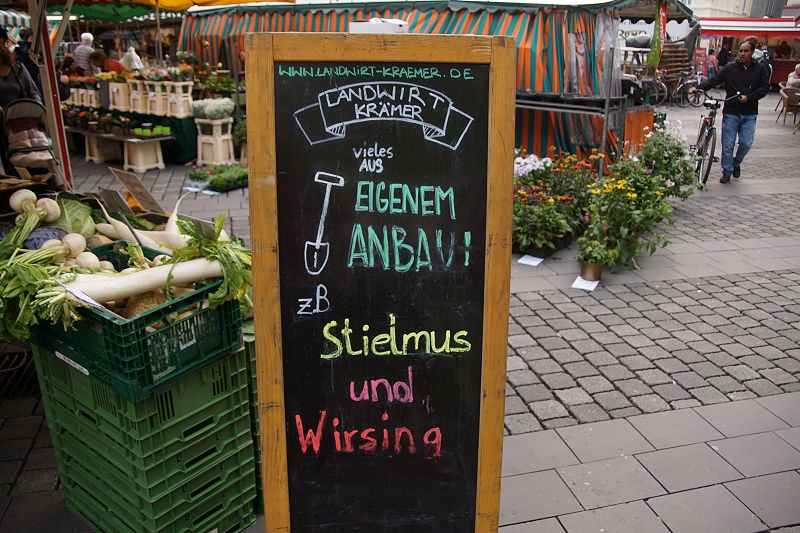 WWW.LANDWIRT-KRAEMER.DE
LANDWIRT
KRÄMER
vieles
AUS
EIGENEM
ANBAU!
z.B
Stielmus
und
Wirsing